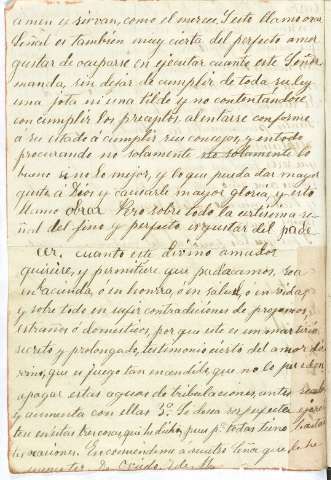 amen y sirvan, como el merece. Y esto llamo orar
Señal es tambien muy cierta del perfecto amor
gustar de ocuparse en ejecutar cuanto este Señor
manda, sin dejar de cumplir de toda su ley
una jota ni una tilde y no contentándose
con cumplir los preceptos alentarse conforme
á su estado á cumplir sus consejos, y en todo
procurando no solamente no solamente lo
bueno si no lo mejor, y lo que pueda dar mayor
gusto á Dios y causarle mayor gloria, y esto
llamo obrar. Pero sobre todo la certisima se-
ñal del fino y perfecto es gustar del pade
cer, cuanto este divino amador
quisiere, y permitiere que padezcamos, sea
en hacienda, ó en honra, ó en salud, ó en vida,
y sobre todo en sufrir contradiciones de projimos,
estraños ó domesticos, por que este es un martirio
secreto y prolongado, testimonio cierto del amor di
vino, que es fuego tan encendido, que no lo pueden
apagar estas aguas de tribulaciones, antes
y aumenta con ellas
en estas tres cosas, que he dicho, pues
ocasiones. Encomiendeme á nuestro Señor que